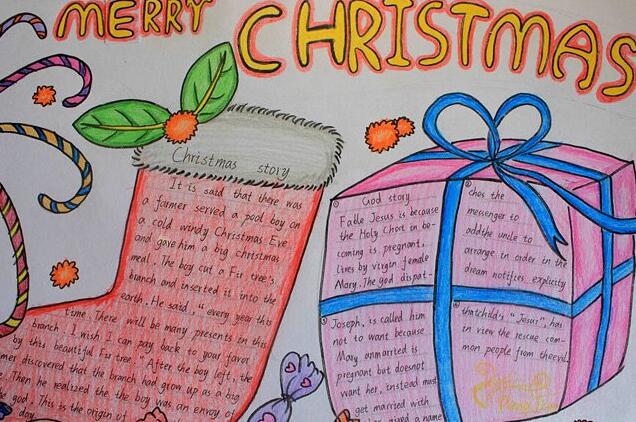 MERRY CHRISTMAS
Christmas story
It is said that there was
a farmer served a pool boy on
a cold windy Christmas Eve
and gave him a big christmas
meal. The boy cut a Fir tree's
branch and inserted it into the
earth. He said, "every year this
time. There will be many presents in this
branch, I wish I can pay back to your favor
by this beautiful Fir tree." After the boy left, the
mer discovered that the branch had grown up as a big
. Then he realized the the boy was an envoy of
god. This is the origin of
day.
① God story
Fable Jesus is because
the Holy Ghort in be-
coming is pregnant,
lives by virgin female
Mary. The god dispat-
② ches the
messenger to
addthe uncle to
arrange in order in the
dream notifies explicity
③ Joseph, is called him
not to want because
Mary unmarried is
pregnant but doesnot
want her, instead must
get married with
given a name
④ thatchild's "Jesus", has
in view the rescue com-
mon people from theevil.